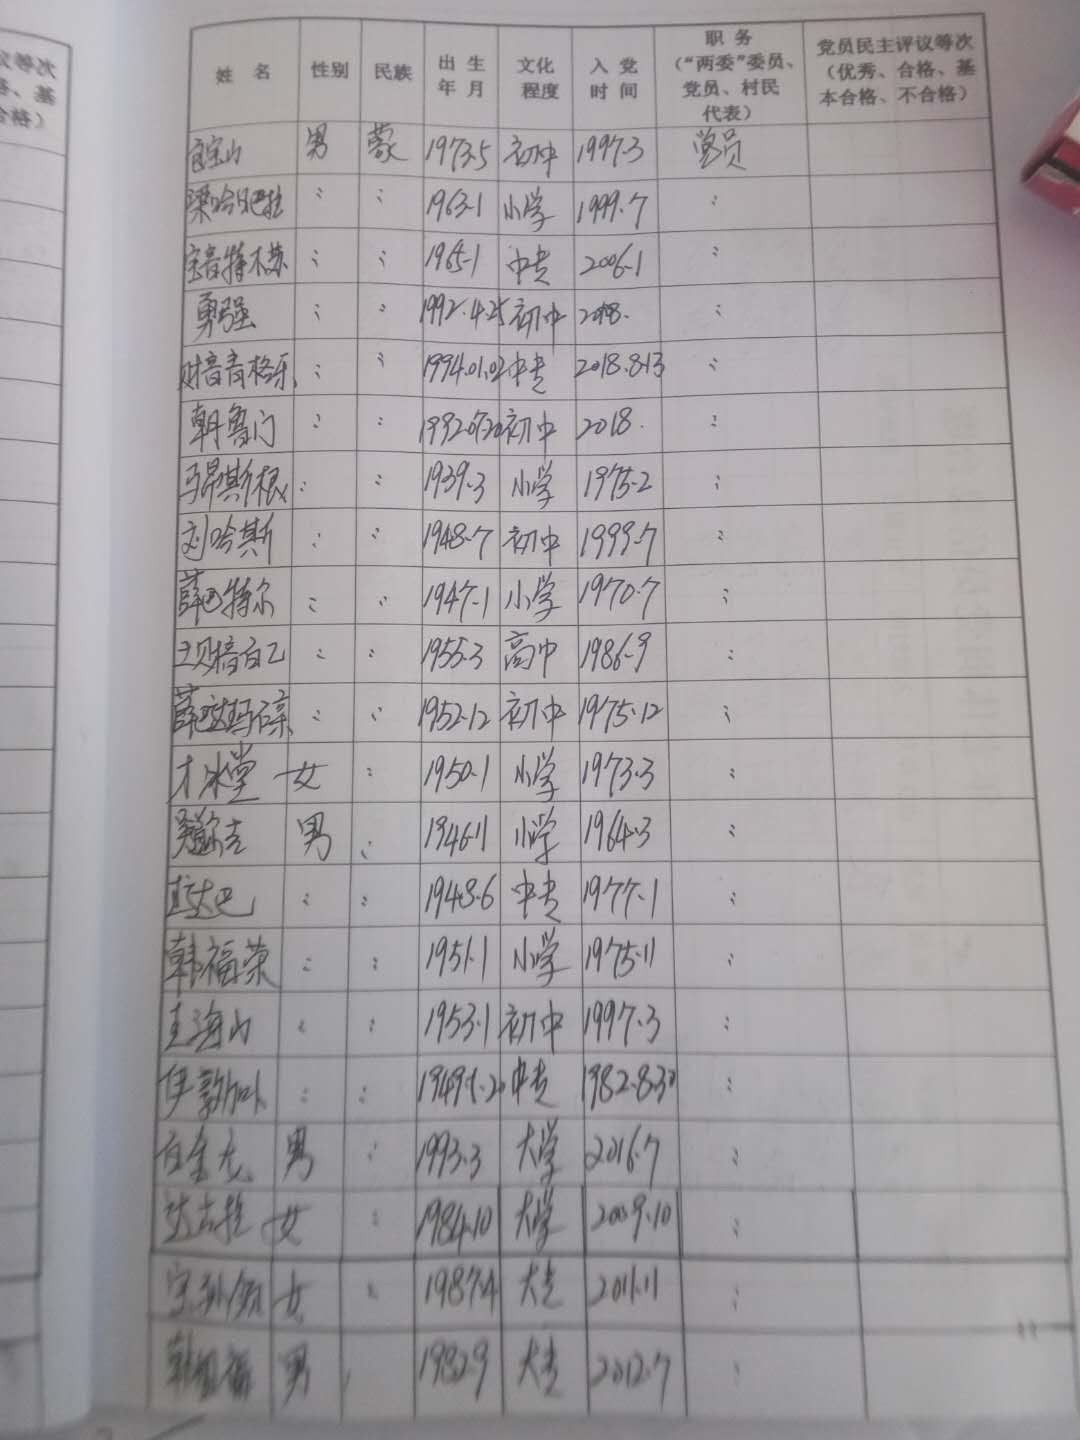 议等次
格、基
合格）
姓 名 性别 民族 出生年月 文化程度 入党时间 职务（“两委”委员、党员、村民代表） 党员民主评议等次（优秀、合格、基本合格、不合格）
白宝山 男 蒙 1973.5 初中 1997.3 党员
梁哈日巴拉 〃 〃 1963.1 小学 1999.7 〃
宝音特木苏 〃 〃 1965.1 中专 2006.1 〃
勇强 〃 〃 1992.4.25 初中 2018. 〃
财音青格乐 〃 〃 1994.01.02 中专 2018.8.13 〃
朝鲁门 〃 〃 1992.07.20 初中 2018. 〃
马昂斯根 〃 〃 1939.3 小学 1975.2 〃
刘哈斯 〃 〃 1948.7 初中 1999.7 〃
薛巴特尔 〃 〃 1947.1 小学 1970.7 〃
〃 〃 1955.3 高中 1986.9 〃
〃 〃 1952.12 初中 1975.12 〃
才冰堂 女 〃 1950.1 小学 1973.3 〃
男 〃 1946.11 小学 1964.3 〃
〃 〃 1948.6 中专 1977.1 〃
韩福荣 〃 〃 1951.1 小学 1975.11 〃
海山 〃 〃 1953.1 初中 1997.3 〃
伊敦加卜 〃 〃 1949.1.20 中专 1982.8.30 〃
白金龙 男 〃 1993.3 大学 2016.7 〃
达古拉 女 〃 1984.10 大学 2009.10 〃
女 〃 1987.4 大专 2011.11 〃
男 1982.9 大专 2012.7 〃